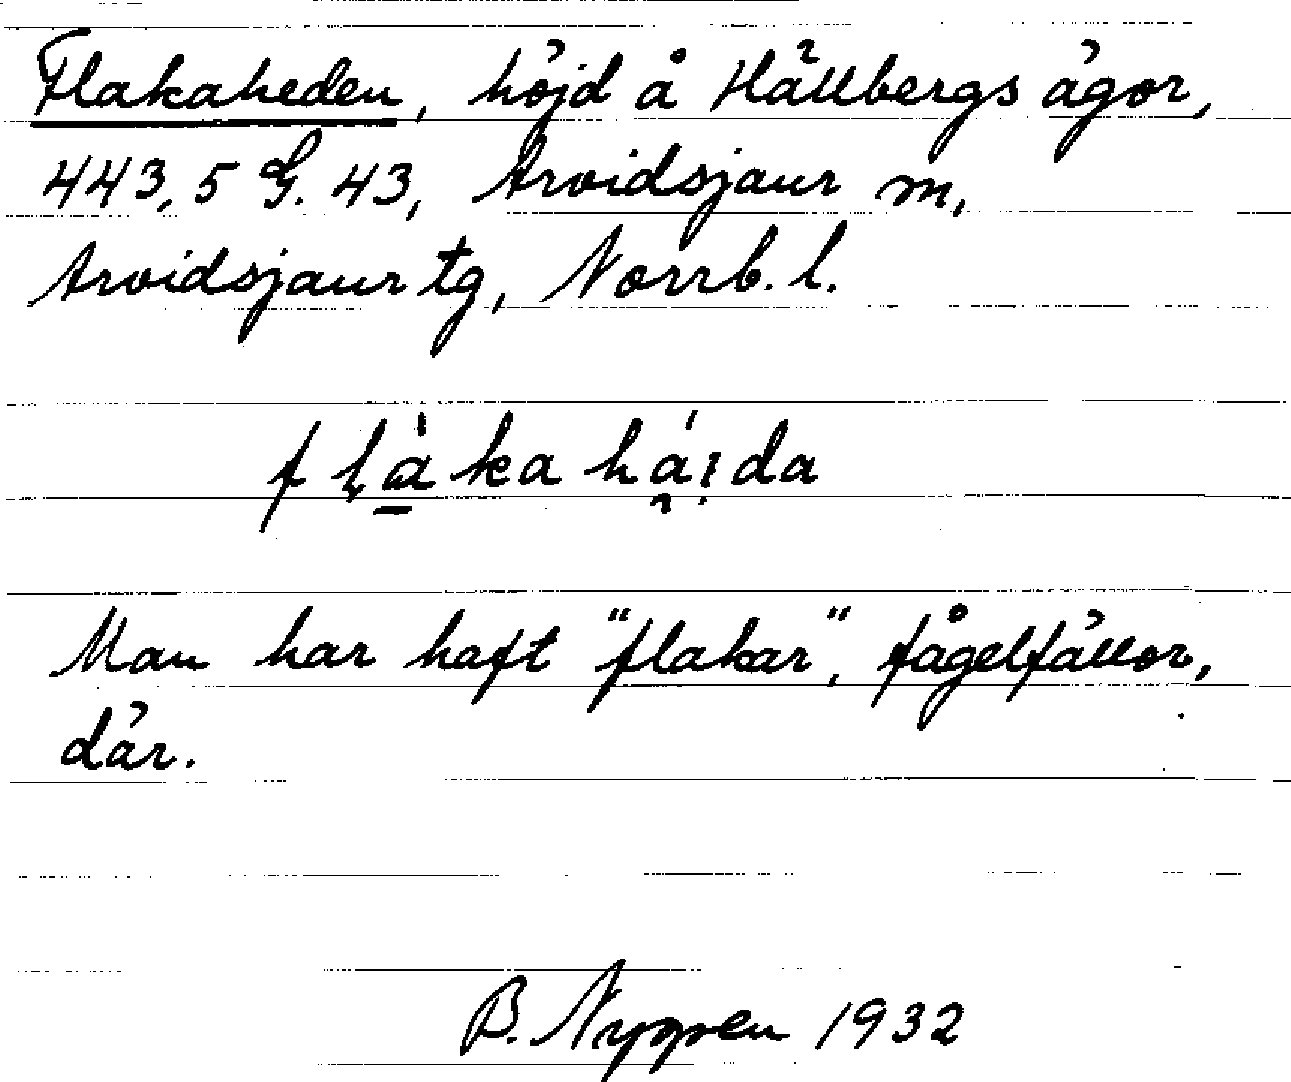 Flakaheden, höjd å Hällbergs ägor,
443,5 G. 43, Arvidsjaur m,
Arvidsjaur tg, Norrb. l.
flàkahái̯da
Man har haft "flakar", fågelfällor,
där.
B. Nygren 1932